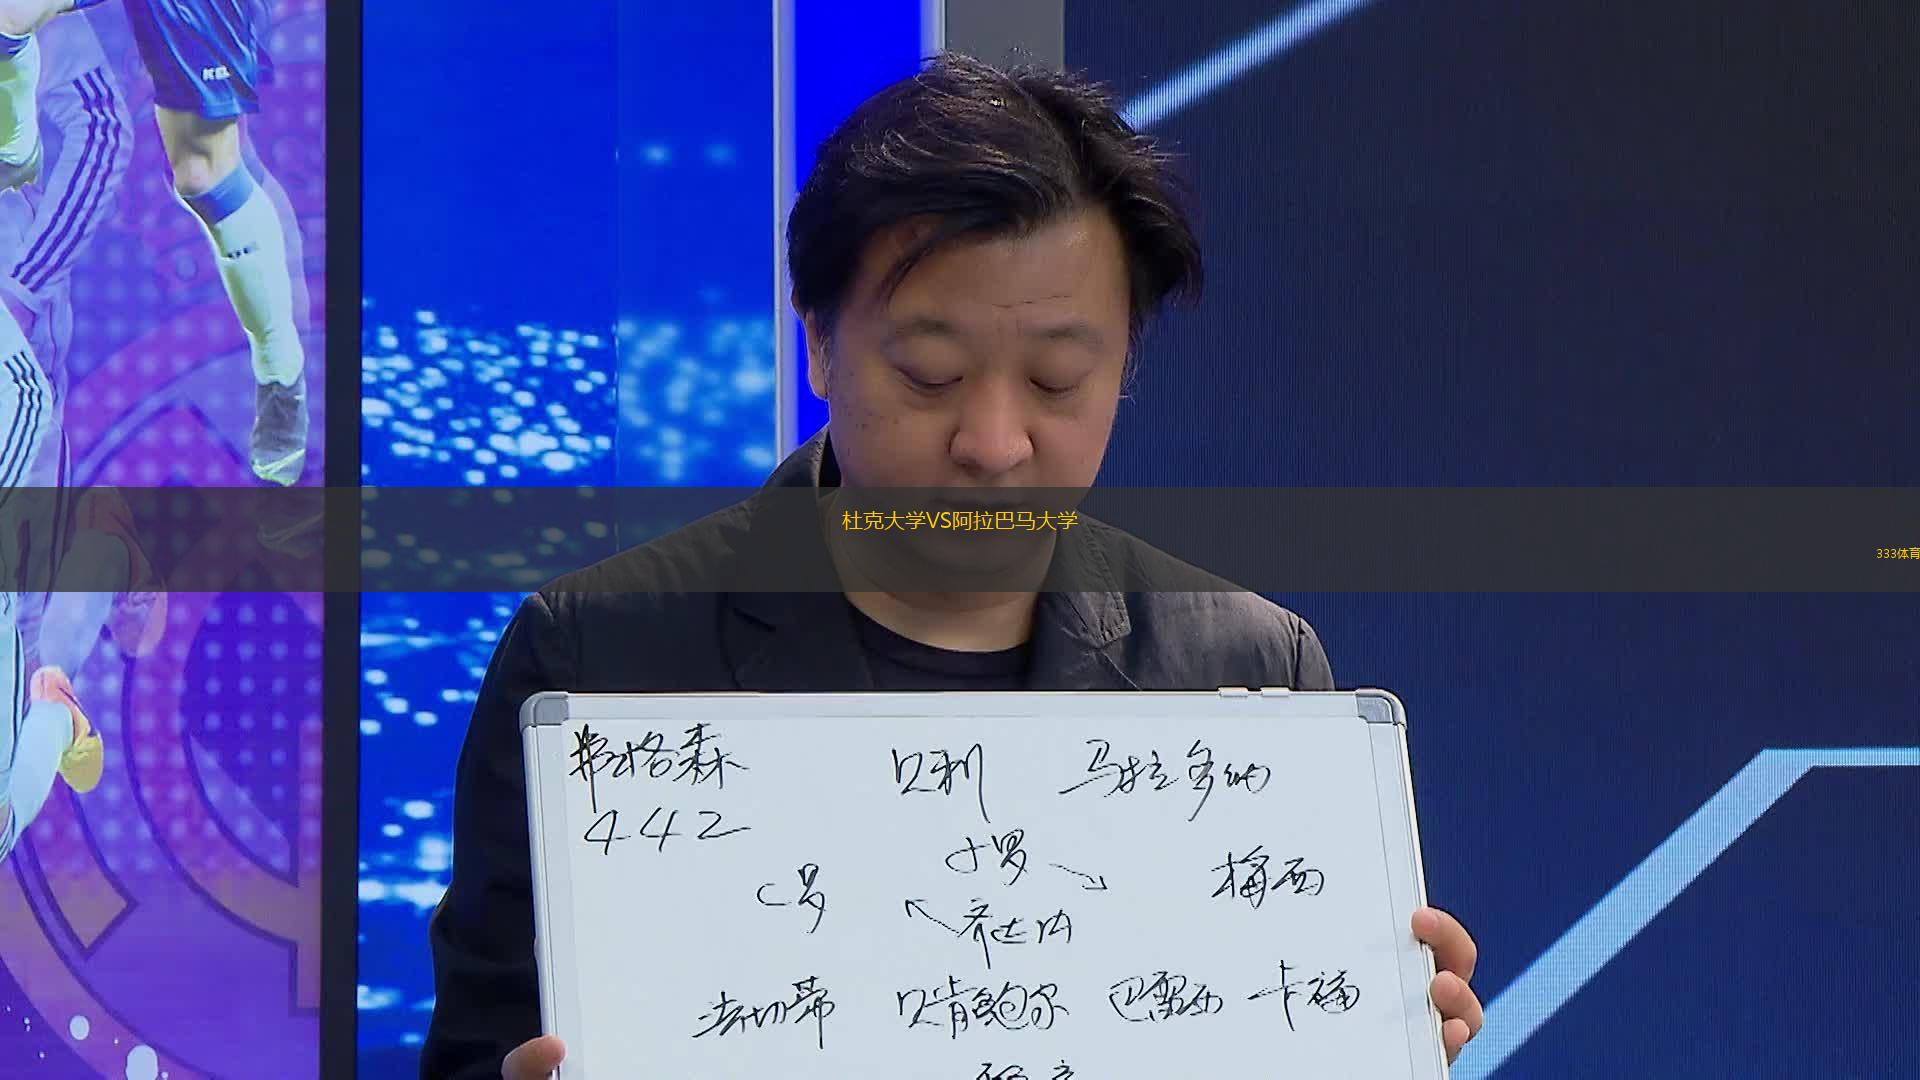 杜克大学VS阿拉巴马大学
333体育
弗格森 贝利 马拉多纳
442
小罗
C罗 梅西
齐达内
法切蒂 贝肯鲍尔 巴雷西 卡福